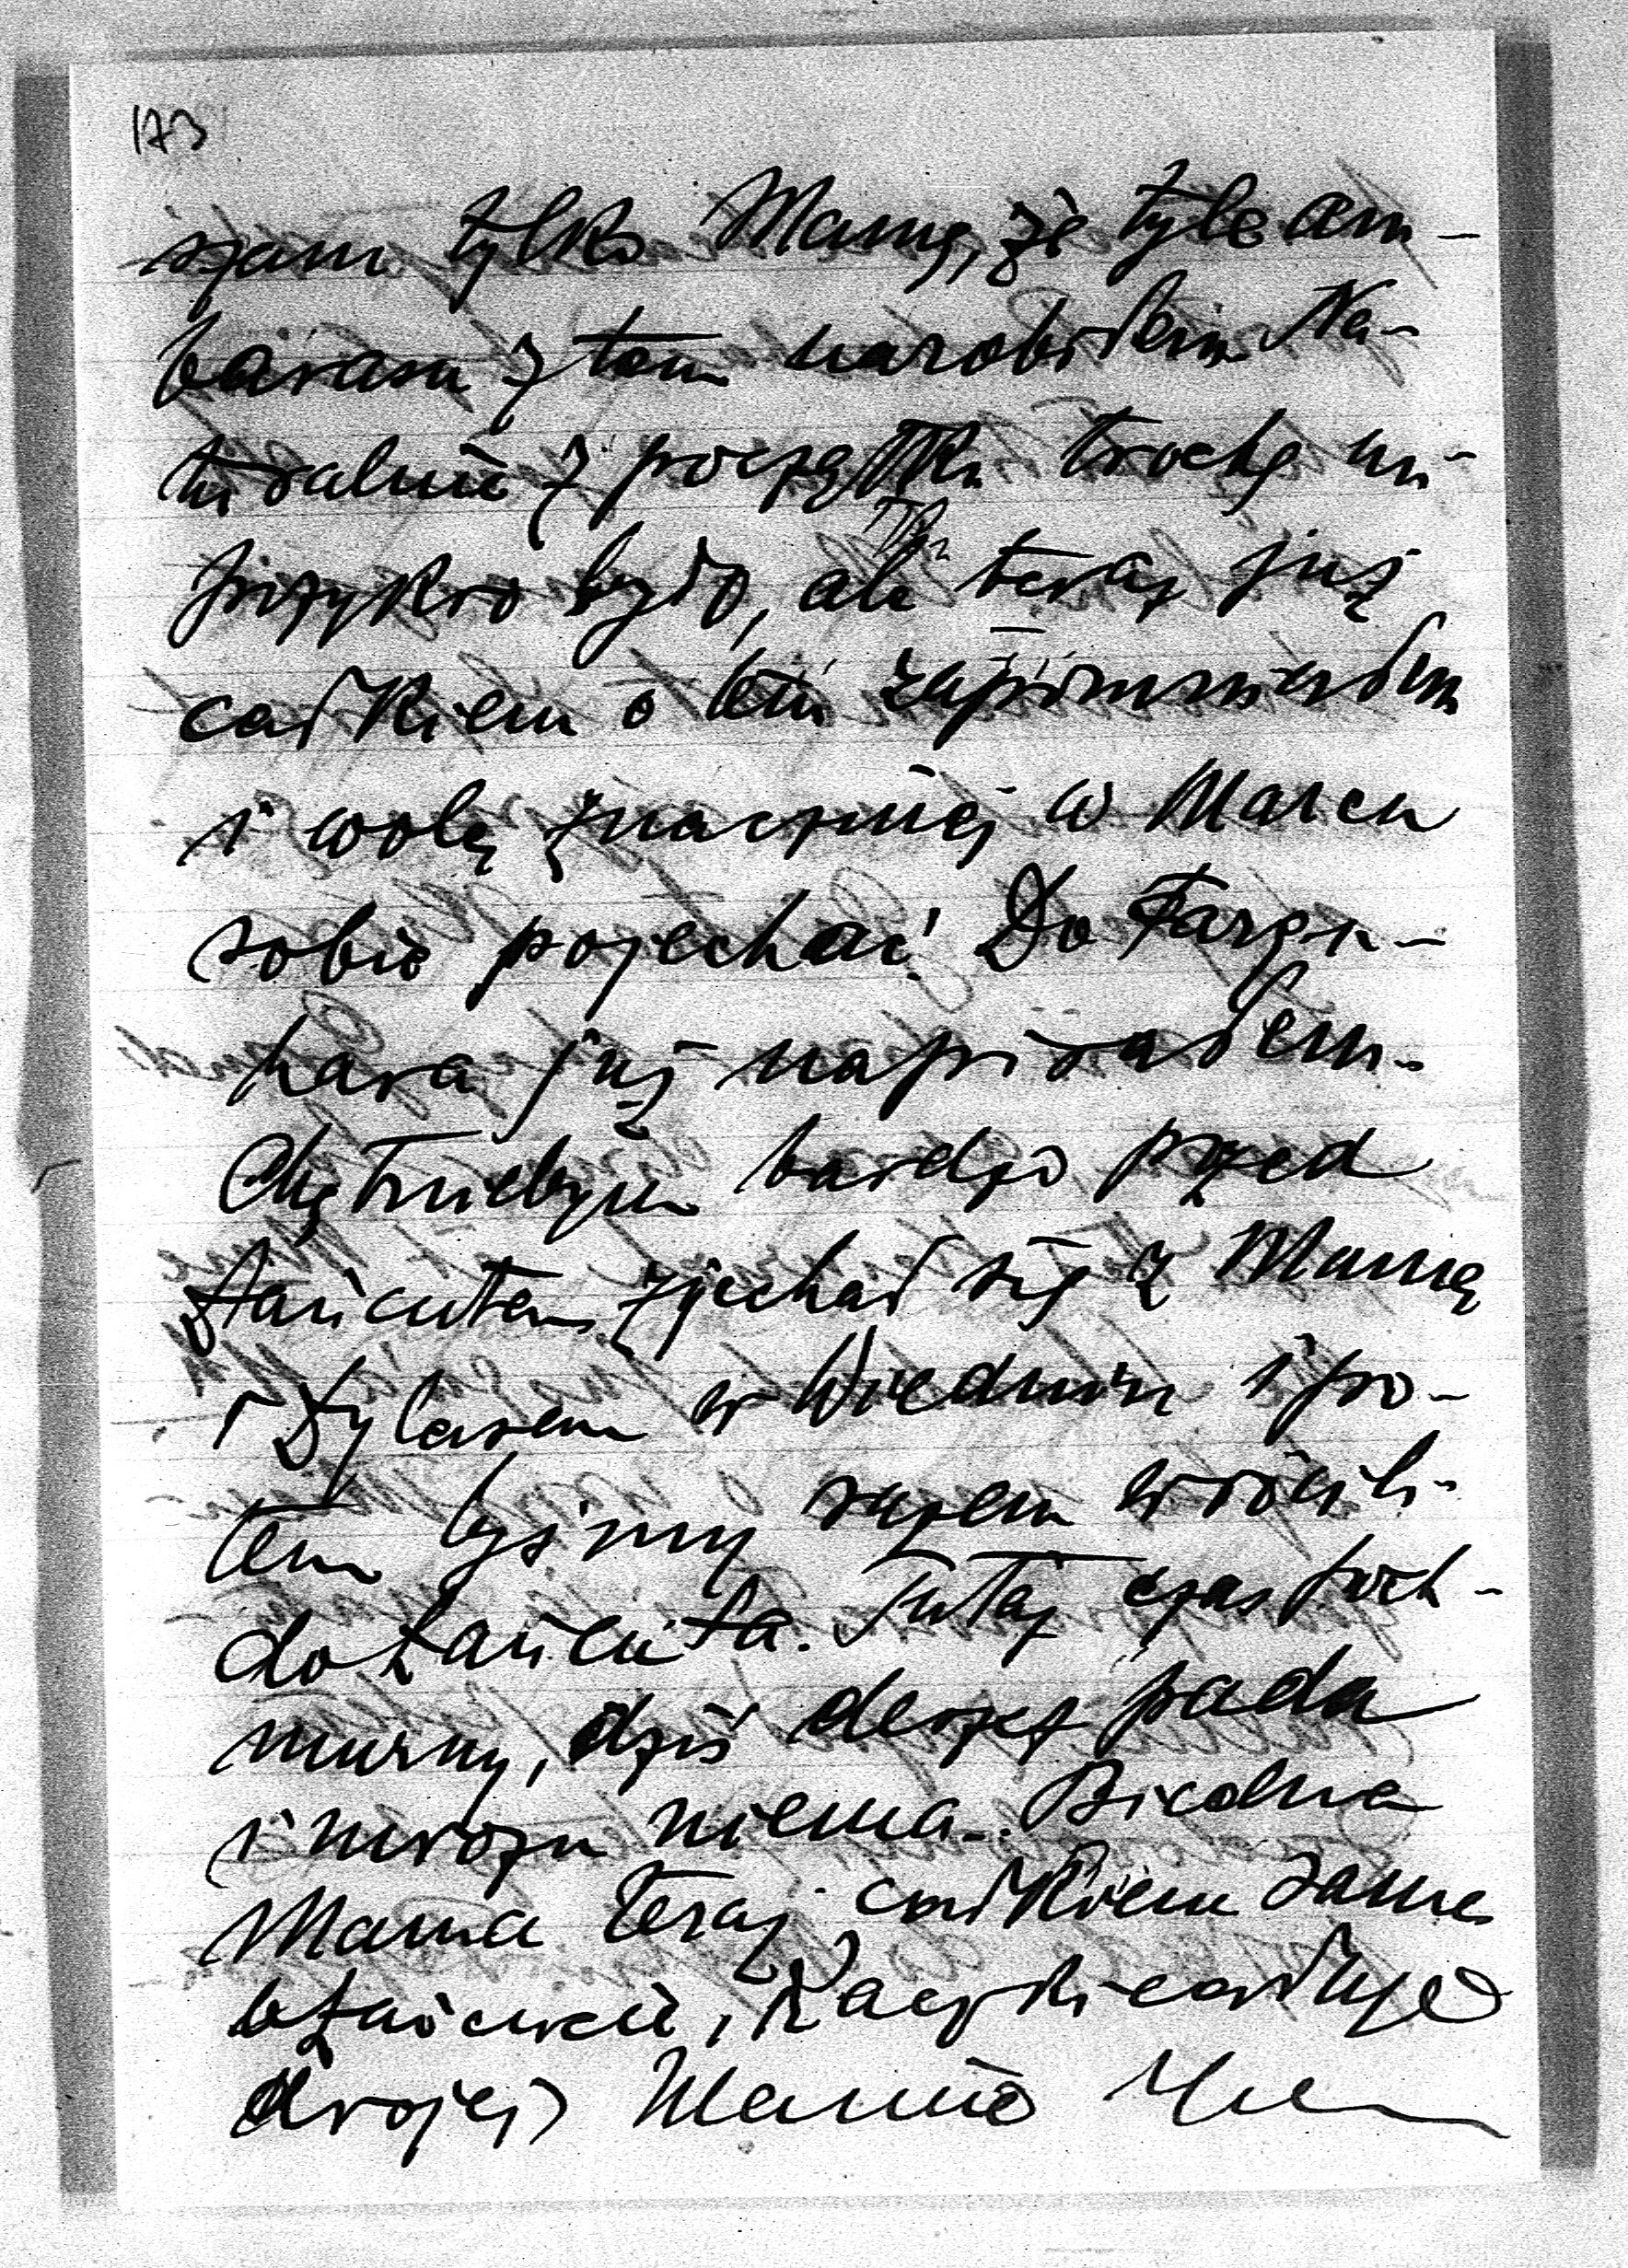 173
szam tylko Mamę, że tyle am-
barasu z tem narobiłem. Na-
turalnie z początku trochę mi
przykro było, ale teraz już
całkiem o tem zapomniałem
i wolę znaczniej w Marcu
sobie pojechać. Do Farqu-
hara już napisałem.
Chętniebym bardzo przed
Łańcutem zjechał się z Mamą
i Dylasem w Wiedniu i po-
tem byśmy razem wrócili
do Łańcuta. Tutaj czas poch-
murny, dziś deszcz pada
i mrozu niema. Biedna
Mama teraz całkiem sama
w Łańcucie, Rączki całuję
drojej Mamie